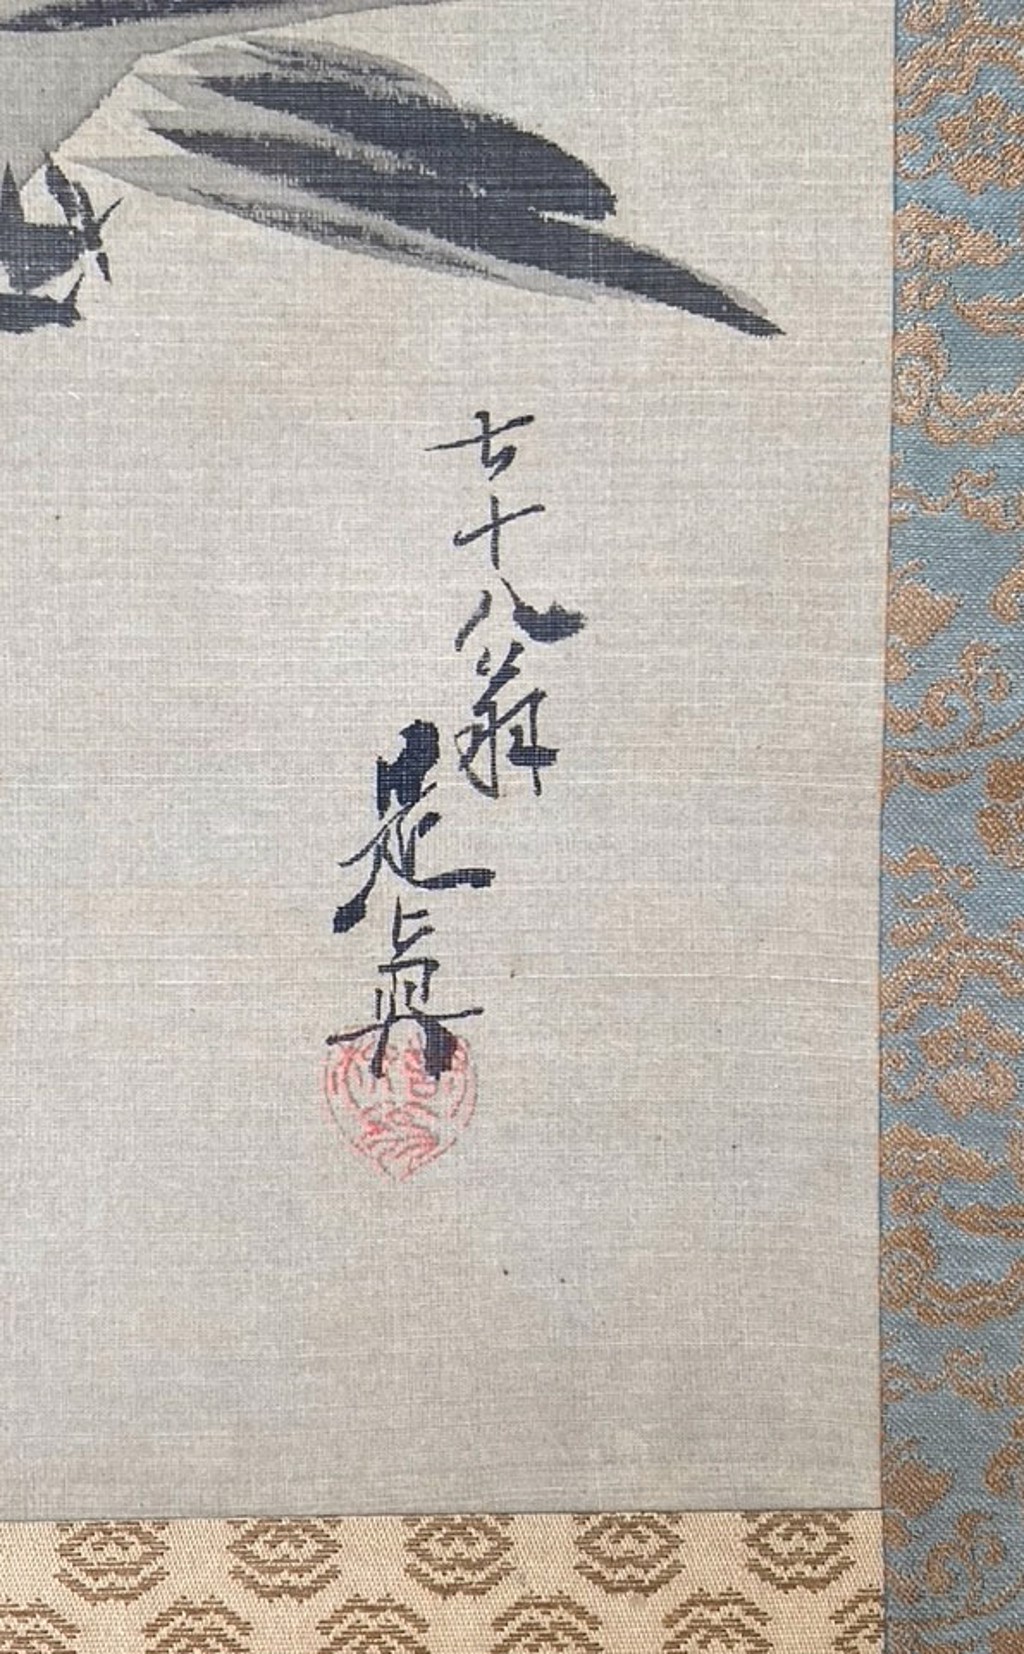 七十八翁
是真